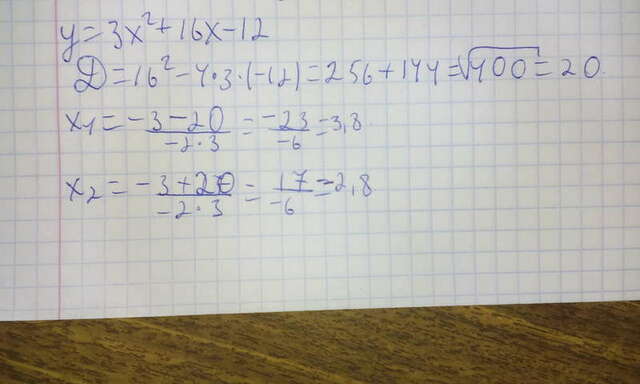 y=3x²+16x-12
D=16²-4·3·(-12)=256+144=√400=20.
x₁=-3-20/-2·3=-23/-6=3,8
x₂=-3+20/-2·3=17/-6=-2,8